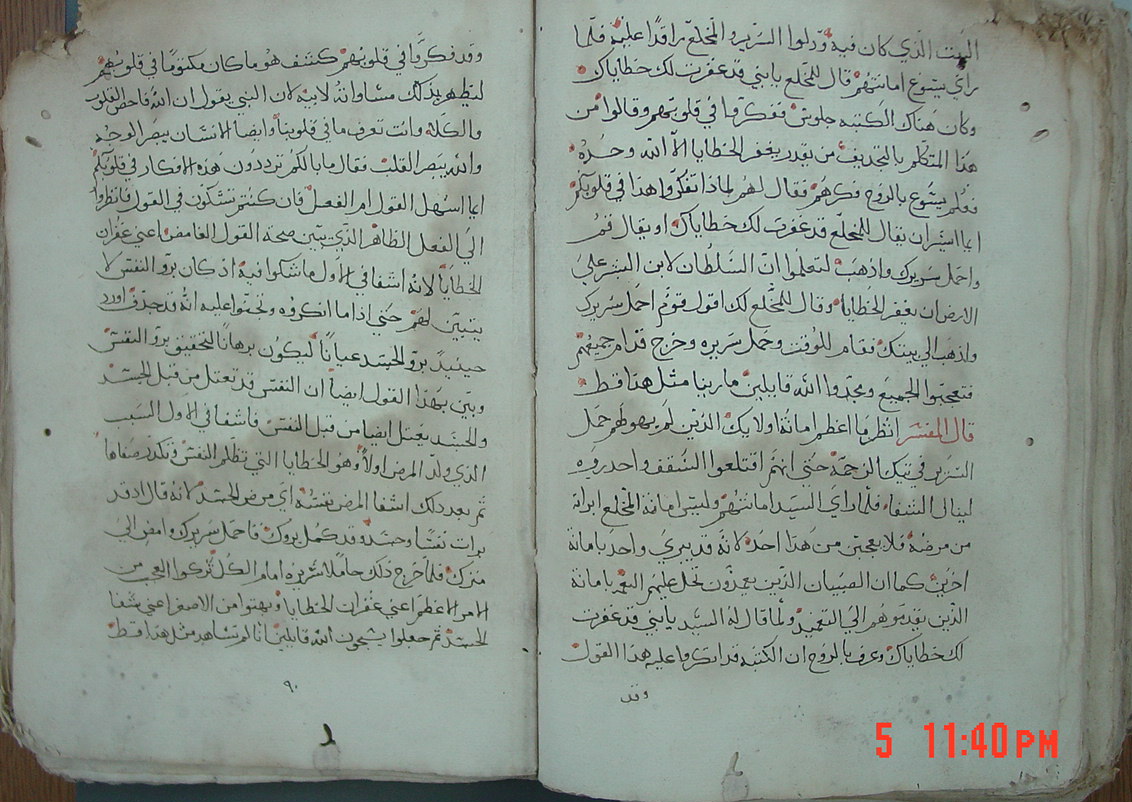 البيت الذي كان فيه ودلوا السرير والمخلع راقدًا عليه فلما
راي يسوع امانتهم قال للمخلع يابني قد غفرت لك خطاياك
وكان هناك الكتبه جلوس ففكروا في قلوبهم وقالوا من
هذا المتكلم بالتجديف من يقدر يغفر الخطايا الا الله وحده
فعلم يسوع بالروح فكرهم فقال لهم لماذا تفكروا هذا في قلوبكم
ايما ايسر ان يقال للمخلع قد غفرت لك خطاياك او يقال قم
واحمل سريرك واذهب لتعلموا ان السلطان لابن البشر علي
الارض ان يغفر الخطايا وقال للمخلع لك اقول قوم احمل سريرك
واذهب الي بيتك فقام للوقت وحمل سريره وخرج قدام جميعهم
فتعجبوا الجميع ومجدوا الله قايلين ما رينا مثل هذا قط
قال المفسر انظر ما اعظم امانة اوليك الذين لم يهولهم حمل
السرير في تيك الزحمة حتي انهم اقتلعوا السقف واحدروه
لينال الشفا فلما راي السيد امانتهم وليس امانة المخلع ابراه
من مرضه فلا يعجبن من هذا احد لانه قد يبري واحد بامانة
اخرين كما ان الصبيان الذين يعمدون تحل عليهم النعمه بامانة
الذين يقدموهم الي التعميد ولما قال له السيد يابني قد غفرت
لك خطاياك وعرف بالروح ان الكتبه قد انكروا عليه هذا القول
وقد
وقد فكروا في قلوبهم كشف هو ما كان مكتومًا في قلوبهم
ليظهر بذلك مساواته لابيه لان النبي يقول ان الله فاحص القلوب
والكلا وانت تعرف ما في قلوبنا وايضا الانسان يبصر الوجه
والله يبصر القلب فقال ما بالكم ترددون هذه الافكار في قلوبكم
ايما اسهل القول ام الفعل فان كنتم تشكون في القول فانظروا
الي الفعل الظاهر الذي يبين صحة القول الغامض اعني غفران
الخطايا لانه اشفا في الاول ما شكوا فيه اذ كان برو النفس لا
يتبين لهم حتي اذا ما انكروه وختموا عليه انه قد جدف اورد
حينيد برو الجسد عيانًا ليكون برهانا لتحقيق برو النفس
وبين بهذا القول ايضا ان النفس قد تعتل من قبل الجسد
والجسد يعتل ايضا من قبل النفس فاشفا في الاول السبب
الذي ولد المرض اولاً وهو الخطايا التي تظلم النفس وتكدر صفاها
ثم بعد ذلك اشفا المرض نفسه اي مرض الجسد لانه قال اذ قد
برات نفسًا وجسد وقد كمل بروك فاحمل سريرك وامض الي
منزلك فلما خرج ذلك حاملا سريره امام الكل تركوا العجب من
الامر الاعظم اعني غفران الخطايا وبهتوا من الاصغر اعني شفا
الجسد ثم جعلوا يسبحون الله قايلين انا لم نشاهد مثل هذا قط
٩٠
5 11:40 PM